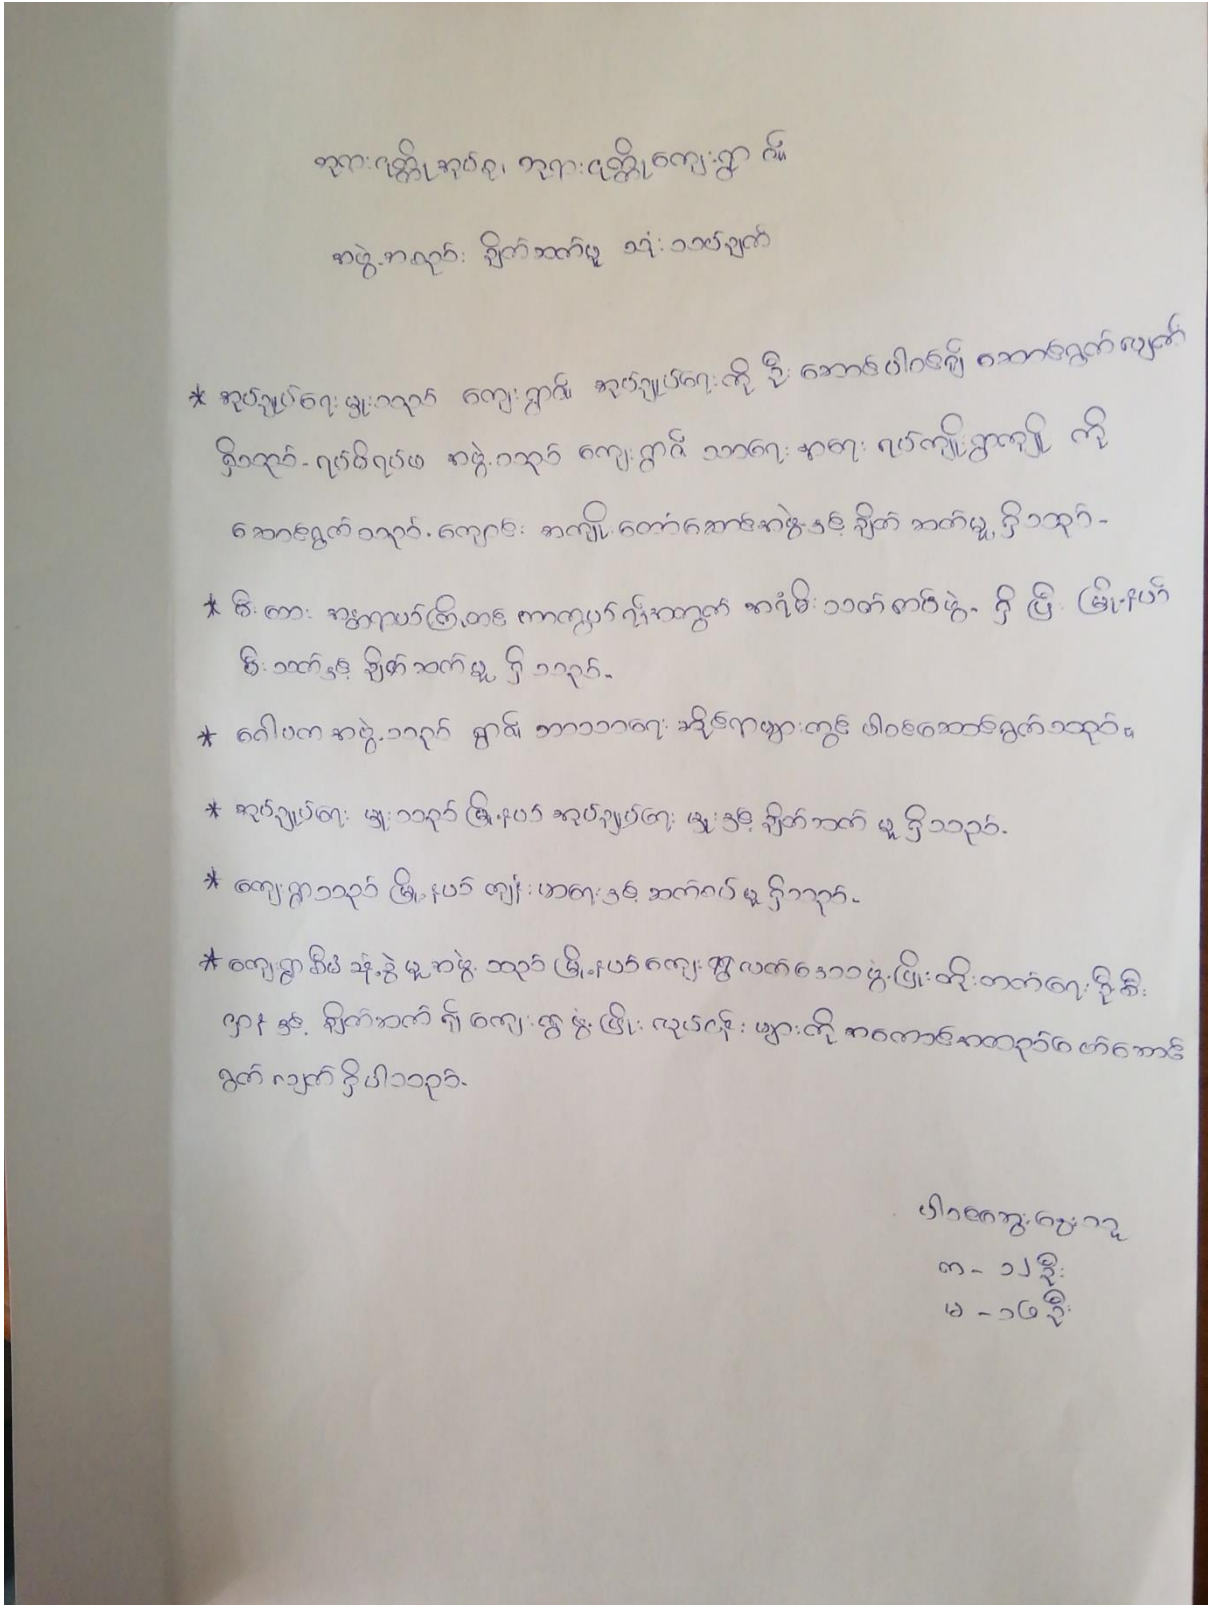 ဘုရားငုတ္တိုအုပ်စု၊ ဘုရားငုတ္တိုကျေးရွာ ၏
အဖွဲ့အစည်း ချိတ်ဆက်မှု သုံးသပ်ချက်
* အုပ်ချုပ်ရေးမှူးသည် ကျေးရွာ၏ အုပ်ချုပ်ရေးကို ဦးဆောင်ပါဝင်၍ ဆောင်ရွက်လျှက်
ရှိသည်. ရပ်မိရပ်ဖ အဖွဲ့သည် ကျေးရွာ၏ သာရေး နာရေး ရပ်ကျိုးရွာကျိုး ကို
ဆောင်ရွက်သည်. ကျောင်း အကျိုးတော်ဆောင်အဖွဲ့နှင့် ချိတ်ဆက်မှု ရှိသည်.
* မီးဘေး အန္တရာယ်ကြိုတင်ကာကွယ်ရန်အတွက် အရံမီးသတ်တပ်ဖွဲ့ ရှိပြီး မြို့နယ်
မီးသတ်နှင့် ချိတ်ဆက်မှု ရှိသည်.
* ဂေါပကအဖွဲ့သည် ရွာ၏ ဘာသာရေး ဆိုင်ရာများတွင် ပါဝင်ဆောင်ရွက်သည်။
* အုပ်ချုပ်ရေး မှူးသည် မြို့နယ် အုပ်ချုပ်ရေး မှူးနှင့် ချိတ်ဆက် မှု ရှိသည်.
* ကျေးရွာသည် မြို့နယ် ကျန်းမာရေးနှင့် ဆက်စပ်မှု ရှိသည်.
* ကျေးရွာစီမံ ခန့်ခွဲမှုအဖွဲ့ သည် မြို့နယ်ကျေးရွှလက်ဒေသဖွံ့ဖြိုးတိုးတက်ရေးဦးစီး
ဌာန နှင့် ချိတ်ဆက် ၍ ကျေးရွာ ဖွံ့ဖြိုး လုပ်ငန်း များကို အကောင်အထည်ဖော်ဆောင်
ရွက် လျှက် ရှိပါသည်.
ပါဝင်ဆွေးနွေးသူ
ကျ - ၁၂ ဦး
မ - ၁၆ ဦး